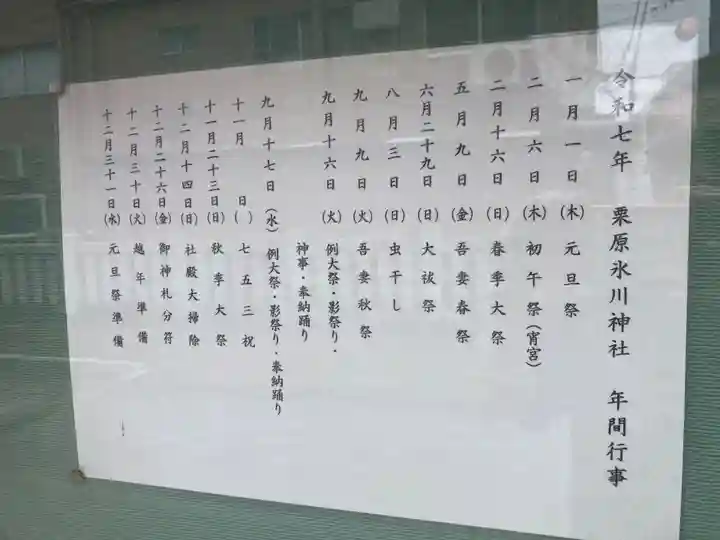 令和七年　栗原氷川神社　年間行事
一月一日（木）元旦祭
二月六日（木）初午祭（宵宮）
二月十六日（日）春季大祭
五月九日（金）吾妻春祭
六月二十九日（日）大祓祭
八月三日（日）虫干し
九月九日（火）吾妻秋祭
九月十六日（火）例大祭・影祭り・
神事・奉納踊り
九月十七日（水）例大祭・影祭り・奉納踊り
十一月　日（　）七五三祝
十一月二十三日（日）秋季大祭
十二月十四日（日）社殿大掃除
十二月二十六日（金）御神札分符
十二月三十日（火）越年準備
十二月三十一日（水）元旦祭準備